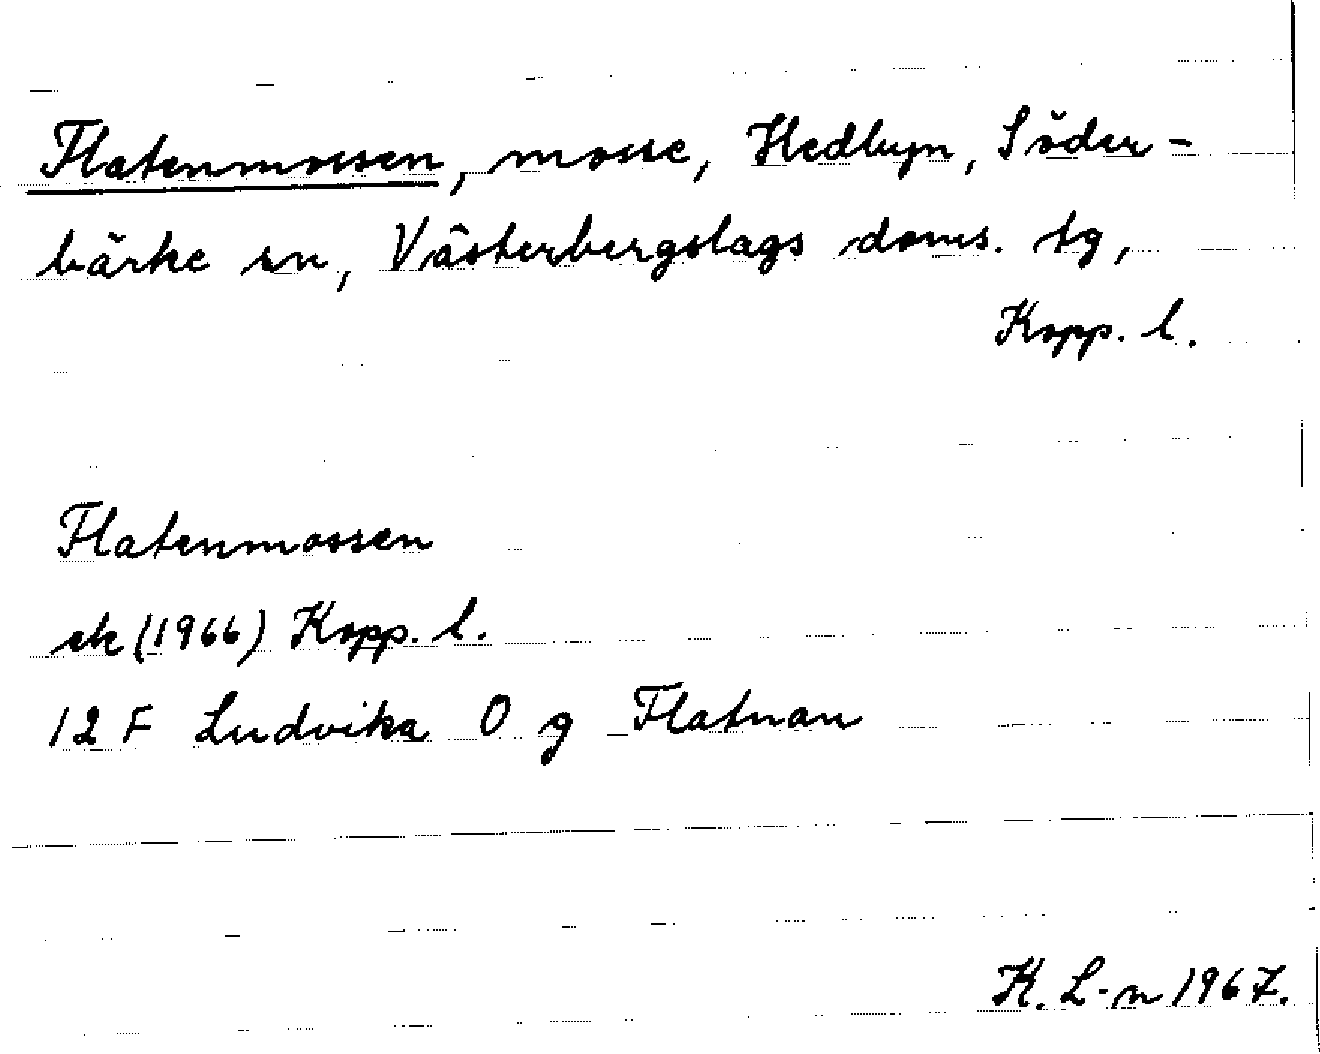 Flatenmossen, mosse, Hedbyn, Söder-
bärke sn, Västerbergslags doms. tg,
Kopp. l.
Flatenmossen
ek (1966) Kopp. l.
12 F Ludvika 0 g Flatnan
K. L-n 1967.